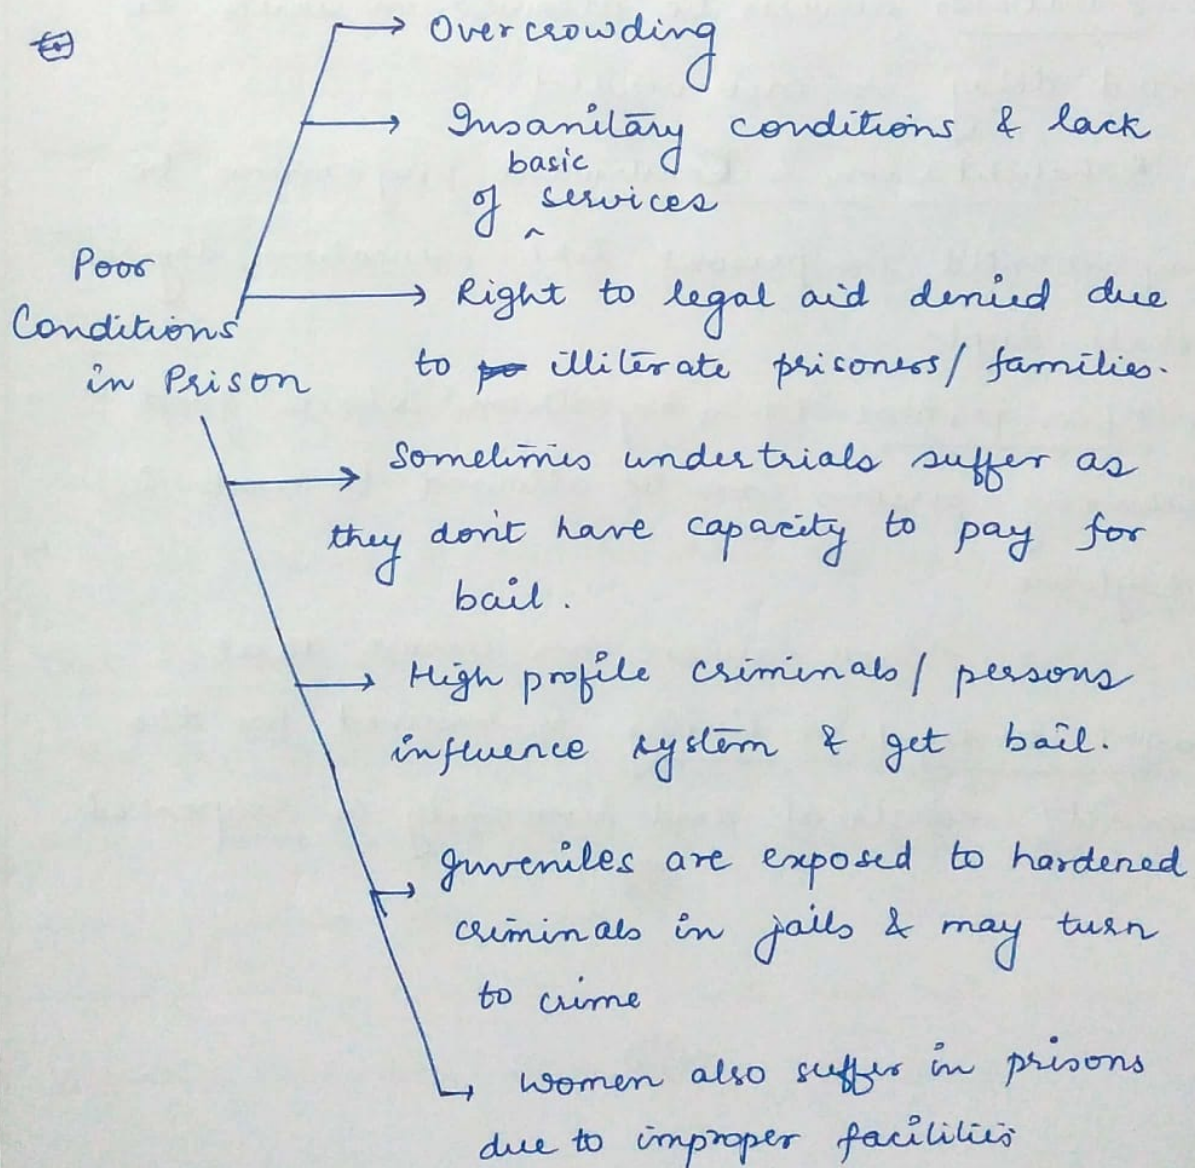 Overcrowding
Insanitary conditions & lack
basic
of ^ services
Poor
Conditions
in Prison
Right to legal aid denied due
to illiterate prisoners/ families.
Sometimes undertrials suffer as
they don't have capacity to pay for
bail.
High profile criminals/ persons
influence system & get bail.
Juveniles are exposed to hardened
criminals in jails & may turn
to crime
Women also suffer in prisons
due to improper facilities